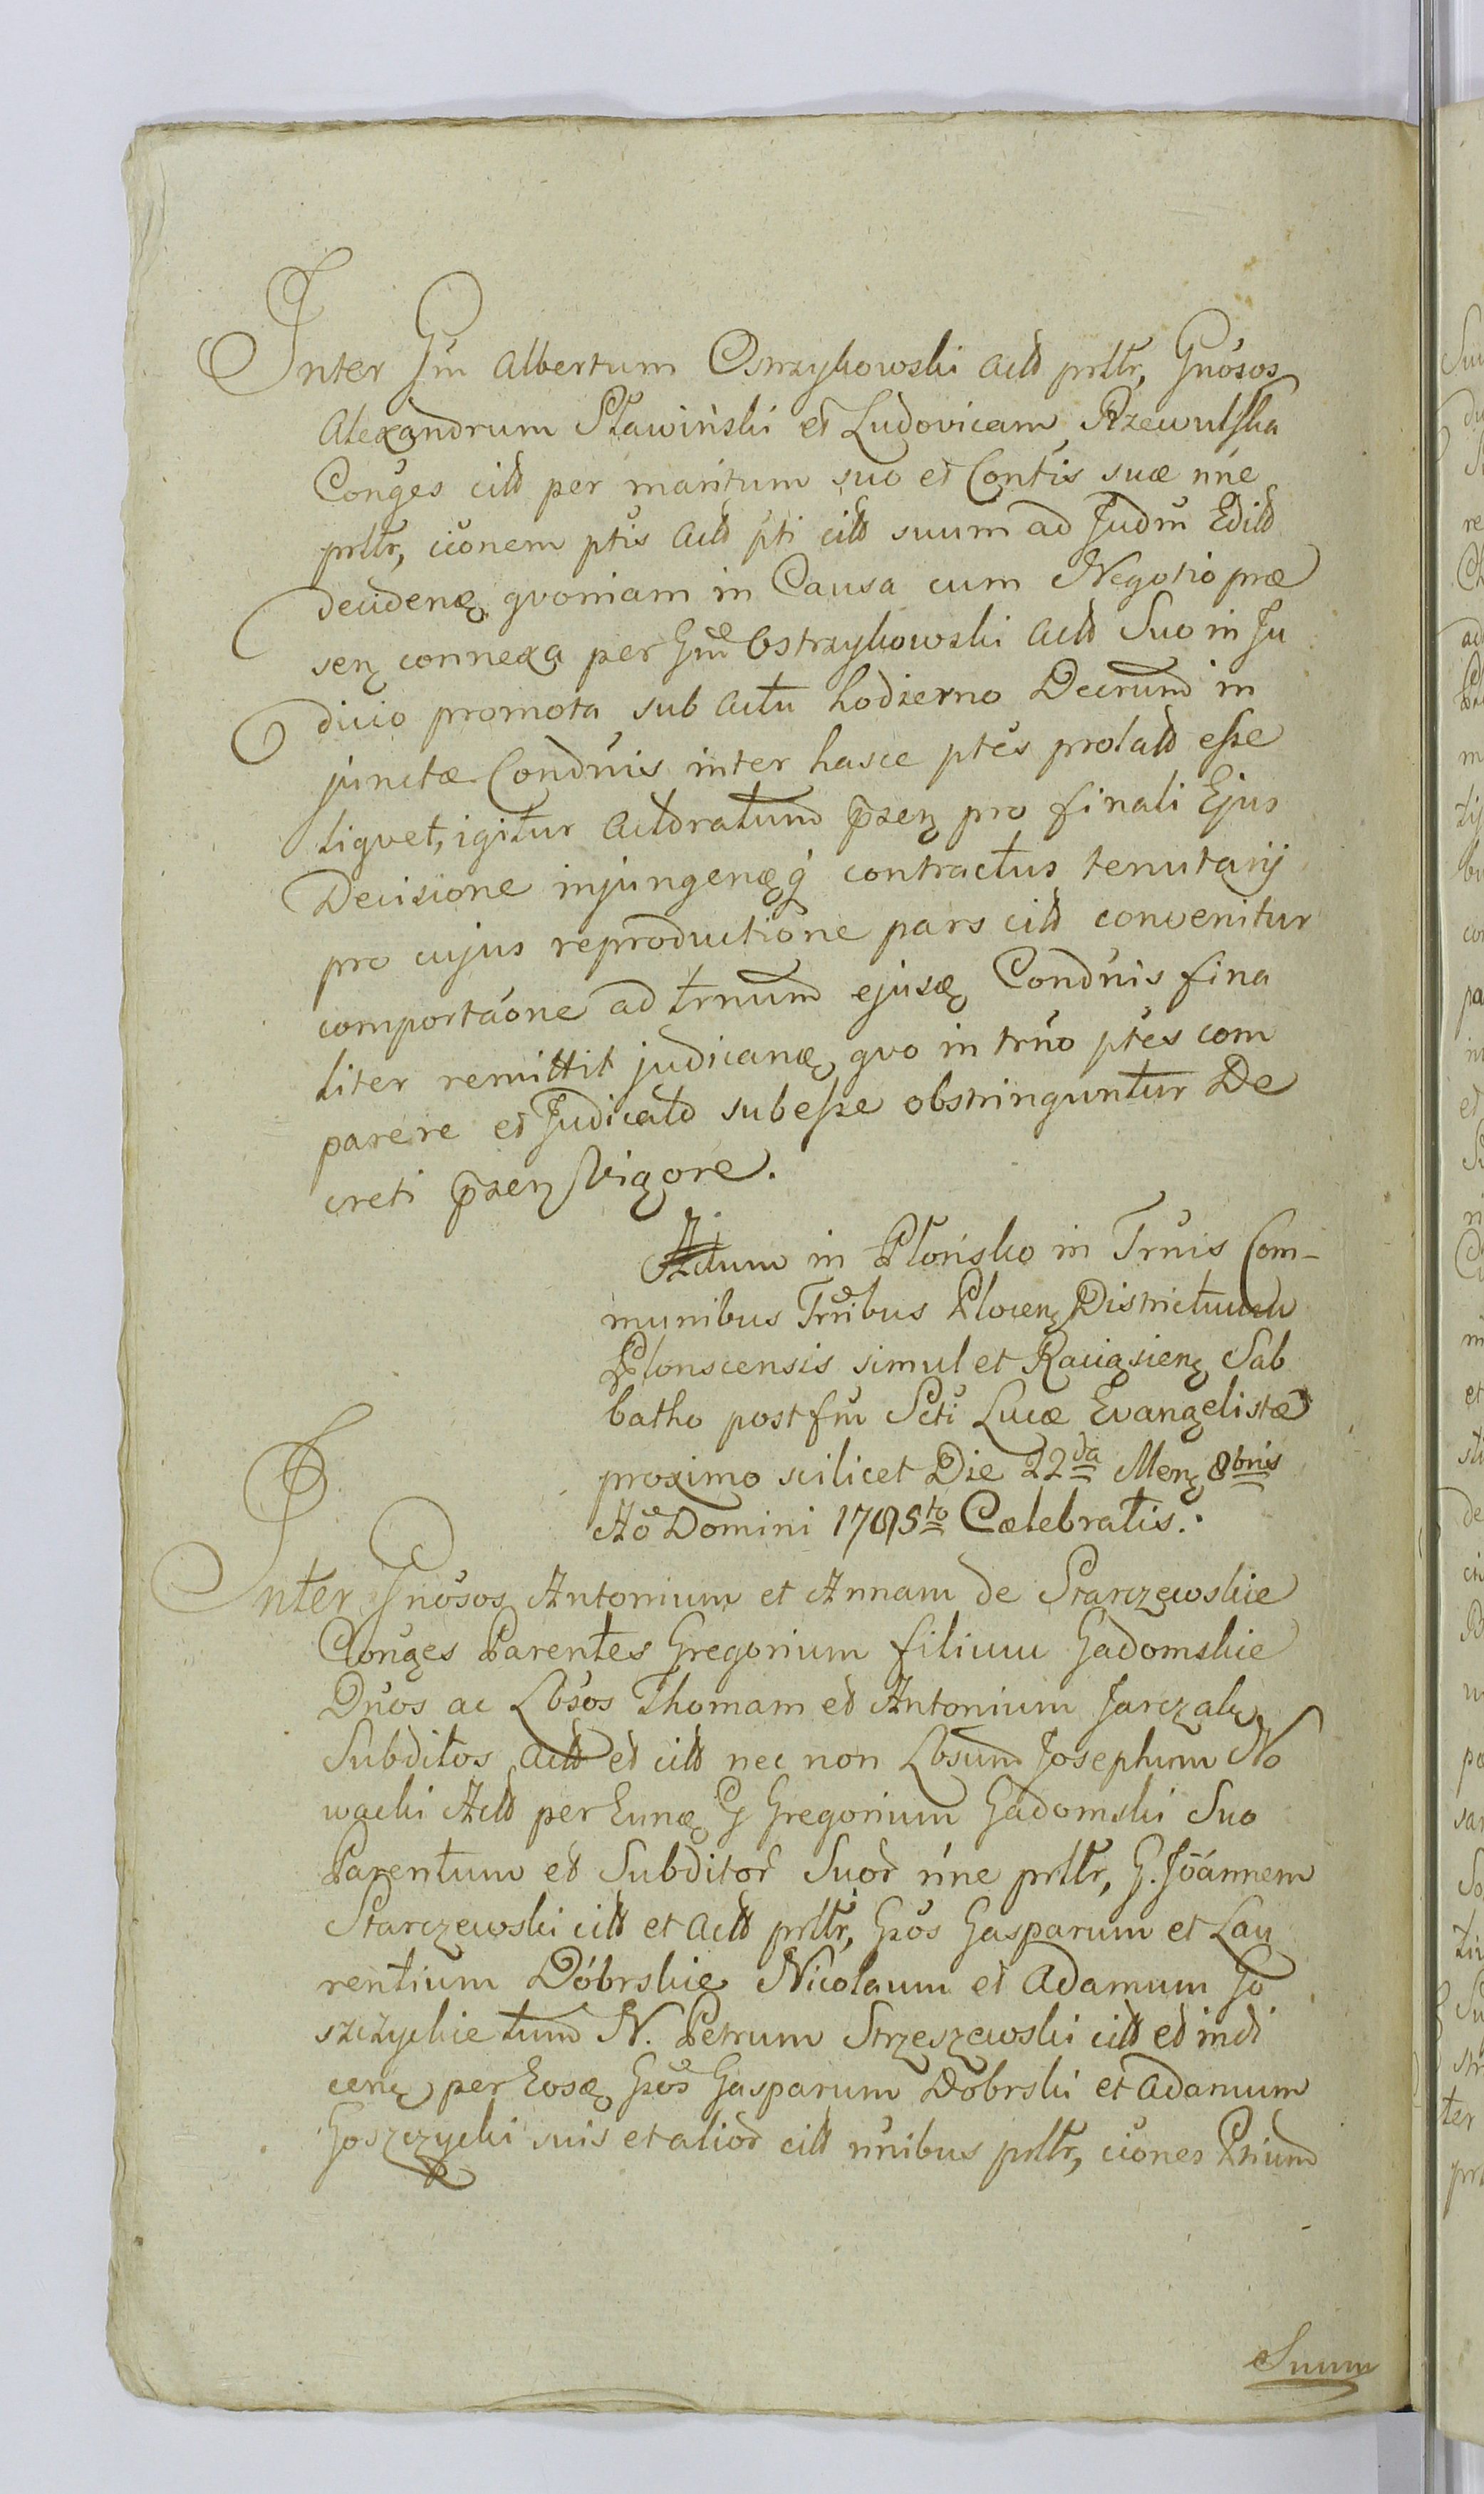 Inter Gm̃ Albertum Ostrzykowski Actõ prltr, Gnõsos
Alexandrum Sławiński et Ludovicam Rzewulska
Conges citõ per maritum suo et Contis suæ nñe
prltr, cionem ptis Actõ pti citõ suum ad Judm̃ Editõ
decidenæ, qvoniam in Causa cum Negotio præ
senz connexa per Gm̃ Ostrzykowski Actõ Suo in Ju
dicio promota sub actu hodierno Decrum in
junctæ Condnis inter hasce ptes prolatõ esse
liqvet, igitur Actoratum p̃senz pro finali Ejus
Decisione injungenæq̃ contractus tenutarij
pro cujus reproductione pars citõ convenitur
comportaone ad trnum ejusæ Condnis fina
liter remittit judicanæ, qvo in trno ptes com
parere et Judicato subesse obstringuntur De
creti p̃senz Vigore.
Actum in Płońsko in Trnis Com-
munibus Trribus Plocenz Districtuum
Plonscensis simul et Raciąsienz Sab
batho post fm̃ Scti Lucæ Evangelistæ
proximo scilicet Die 22da Menz 8bris
Aõ Domini 1785to Cælebratis.
Inter Gnõsos Antonium et Annam de Starczewskie
Conges Parentes Gregorium filium Gadomskie
Dnõs ac Lbõsos Thomam et Antonium Jarczak
Subditos Actõ et citõ nec non Lbsum Josephum No
wacki Actõ per Eunæ G Gregorium Gadomski Suo
Parentum et Subditor Suor nñe prltr, G. Joannem
Starczewski citõ et Actõ prltr, Gsõs Gasparum et Lau
rentium Dóbrskie Nicolaum et Adamum Go
szczyckie tum N. Petrum Strzeszewski citõ et indi
cenz per Eosæ Gsõs Gasparum Dobrski et Adamum
Goszczycki suis et alior citõ nnibus prltr, ciones Ptium
Suum